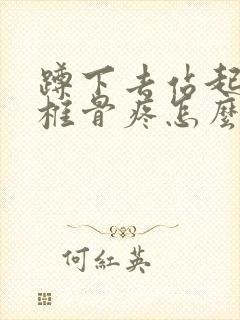 蹲下去佔起
椎骨疼怎麼
何紅英